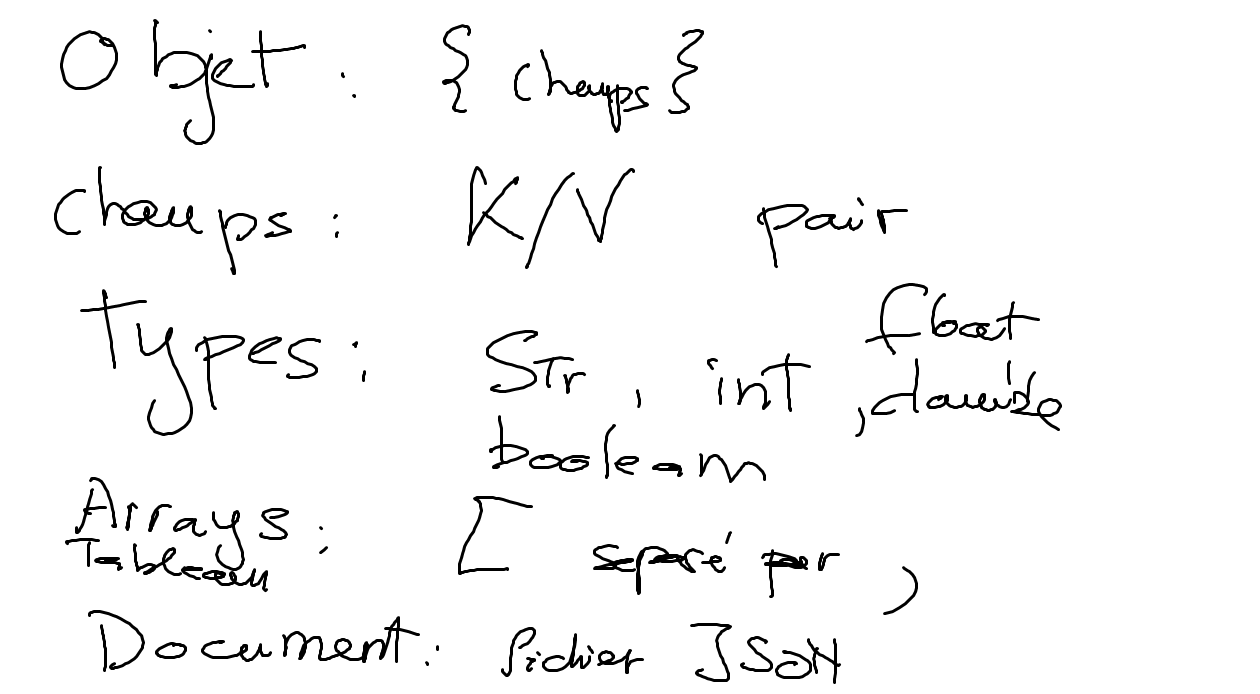 Objet : { champs }
champs : K/V pair
Types : Str , int , float
boolean
Arrays : [ separé par ,
Tableau
Document : fichier JSON